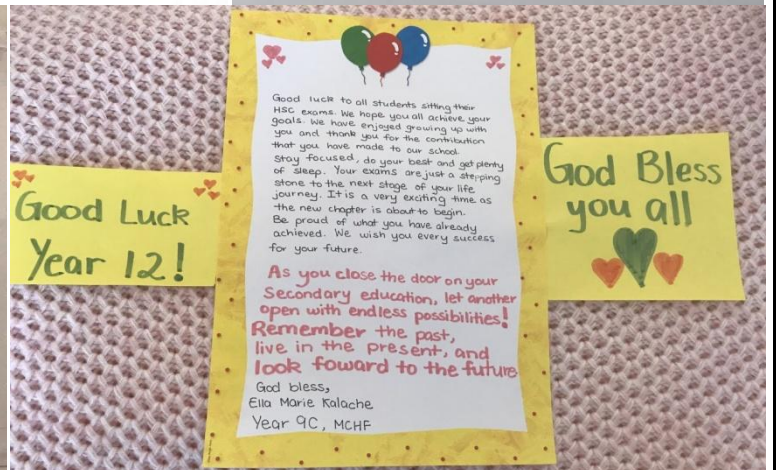 Good Luck
Year 12!
Good luck to all students sitting their
HSC exams. We hope you all achieve your
goals. We have enjoyed growing up with
you and thank you for the contribution
that you have made to our school.
Stay focused, do your best and get plenty
of sleep. Your exams are just a stepping
stone to the next stage of your life
journey. It is a very exciting time as
the new chapter is about to begin.
Be proud of what you have already
achieved. We wish you every success
for your future.
As you close the door on your
Secondary education, let another
open with endless possibilities!
Remember the past,
live in the present, and
look foward to the future
God bless,
Ella Marie Kalache
Year 9C, MCHF
God Bless
you all